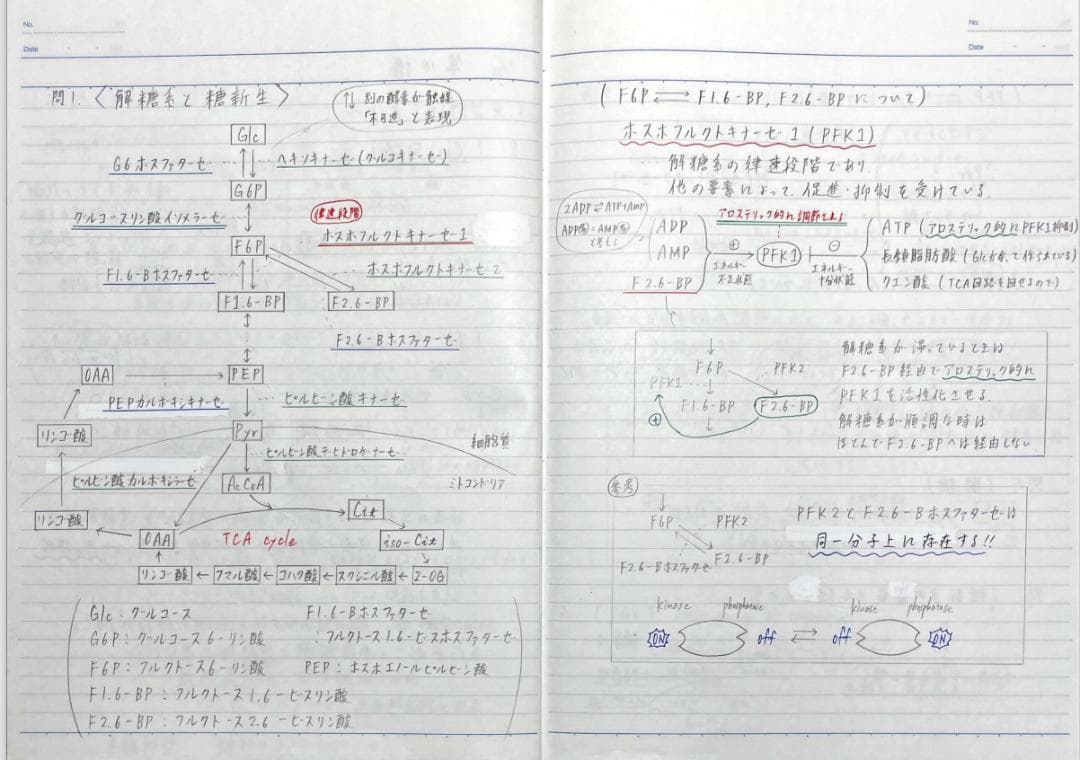 No.
Date
問1.〈解糖系と糖新生〉
↑↓ 別の酵素が触媒
「不可逆」と表現
Glc
G6ホスファターゼ
ヘキソキナーゼ(グルコキナーゼ)
G6P
グルコースリン酸イソメラーゼ
律速段階
ホスホフルクトキナーゼ1
F6P
F1.6-Bホスファターゼ
ホスホフルクトキナーゼ2
F1.6-BP
F2.6-BP
F2.6-Bホスファターゼ
OAA
PEP
PEPカルボキシキナーゼ
ピルビン酸キナーゼ
リンゴ酸
Pyr
細胞質
ピルビン酸デヒドロゲナーゼ
ピルビン酸カルボキシラーゼ
AcCoA
ミトコンドリア
リンゴ酸
Cit
OAA
TCA cycle
iso-Cit
リンゴ酸 ← フマル酸 ← コハク酸 ← スクシニル酸 ← 2-OG
Glc:グルコース
G6P:グルコース6-リン酸
F6P:フルクトース6-リン酸
F1.6-BP:フルクトース1.6-ビスリン酸
F2.6-BP:フルクトース2.6-ビスリン酸
F1.6-Bホスファターゼ
:フルクトース1.6-ビスホスファターゼ
PEP:ホスホエノールピルビン酸
No.
Date
(F6P ⇄ F1.6-BP, F2.6-BPについて)
ホスホフルクトキナーゼ1(PFK1)
解糖系の律速段階であり
他の要素によって、促進・抑制を受けている。
2ADP ⇄ ATP+AMP
ADP高=AMP高
と考える
アロステリック的に調節される
ADP
AMP
F2.6-BP
⊕
エネルギー
不足状態
PFK1
⊖
エネルギー
十分状態
ATP(アロステリック的にPFK1抑制)
長鎖脂肪酸(Glcが余って作られている)
クエン酸(TCA回路を回せるので)
F6P
PFK1
PFK2
F1.6-BP
F2.6-BP
⊕
解糖系が滞っているときは
F2.6-BP経由でアロステリック的に
PFK1を活性化させる.
解糖系が順調な時は
ほとんどF2.6-BPへは経由しない
参考
F6P
PFK2
F2.6-Bホスファターゼ
F2.6-BP
PFK2とF2.6-Bホスファターゼは
同一分子上に存在する!!
kinase
phosphatase
kinase
phosphatase
ON
off
⇄
off
ON